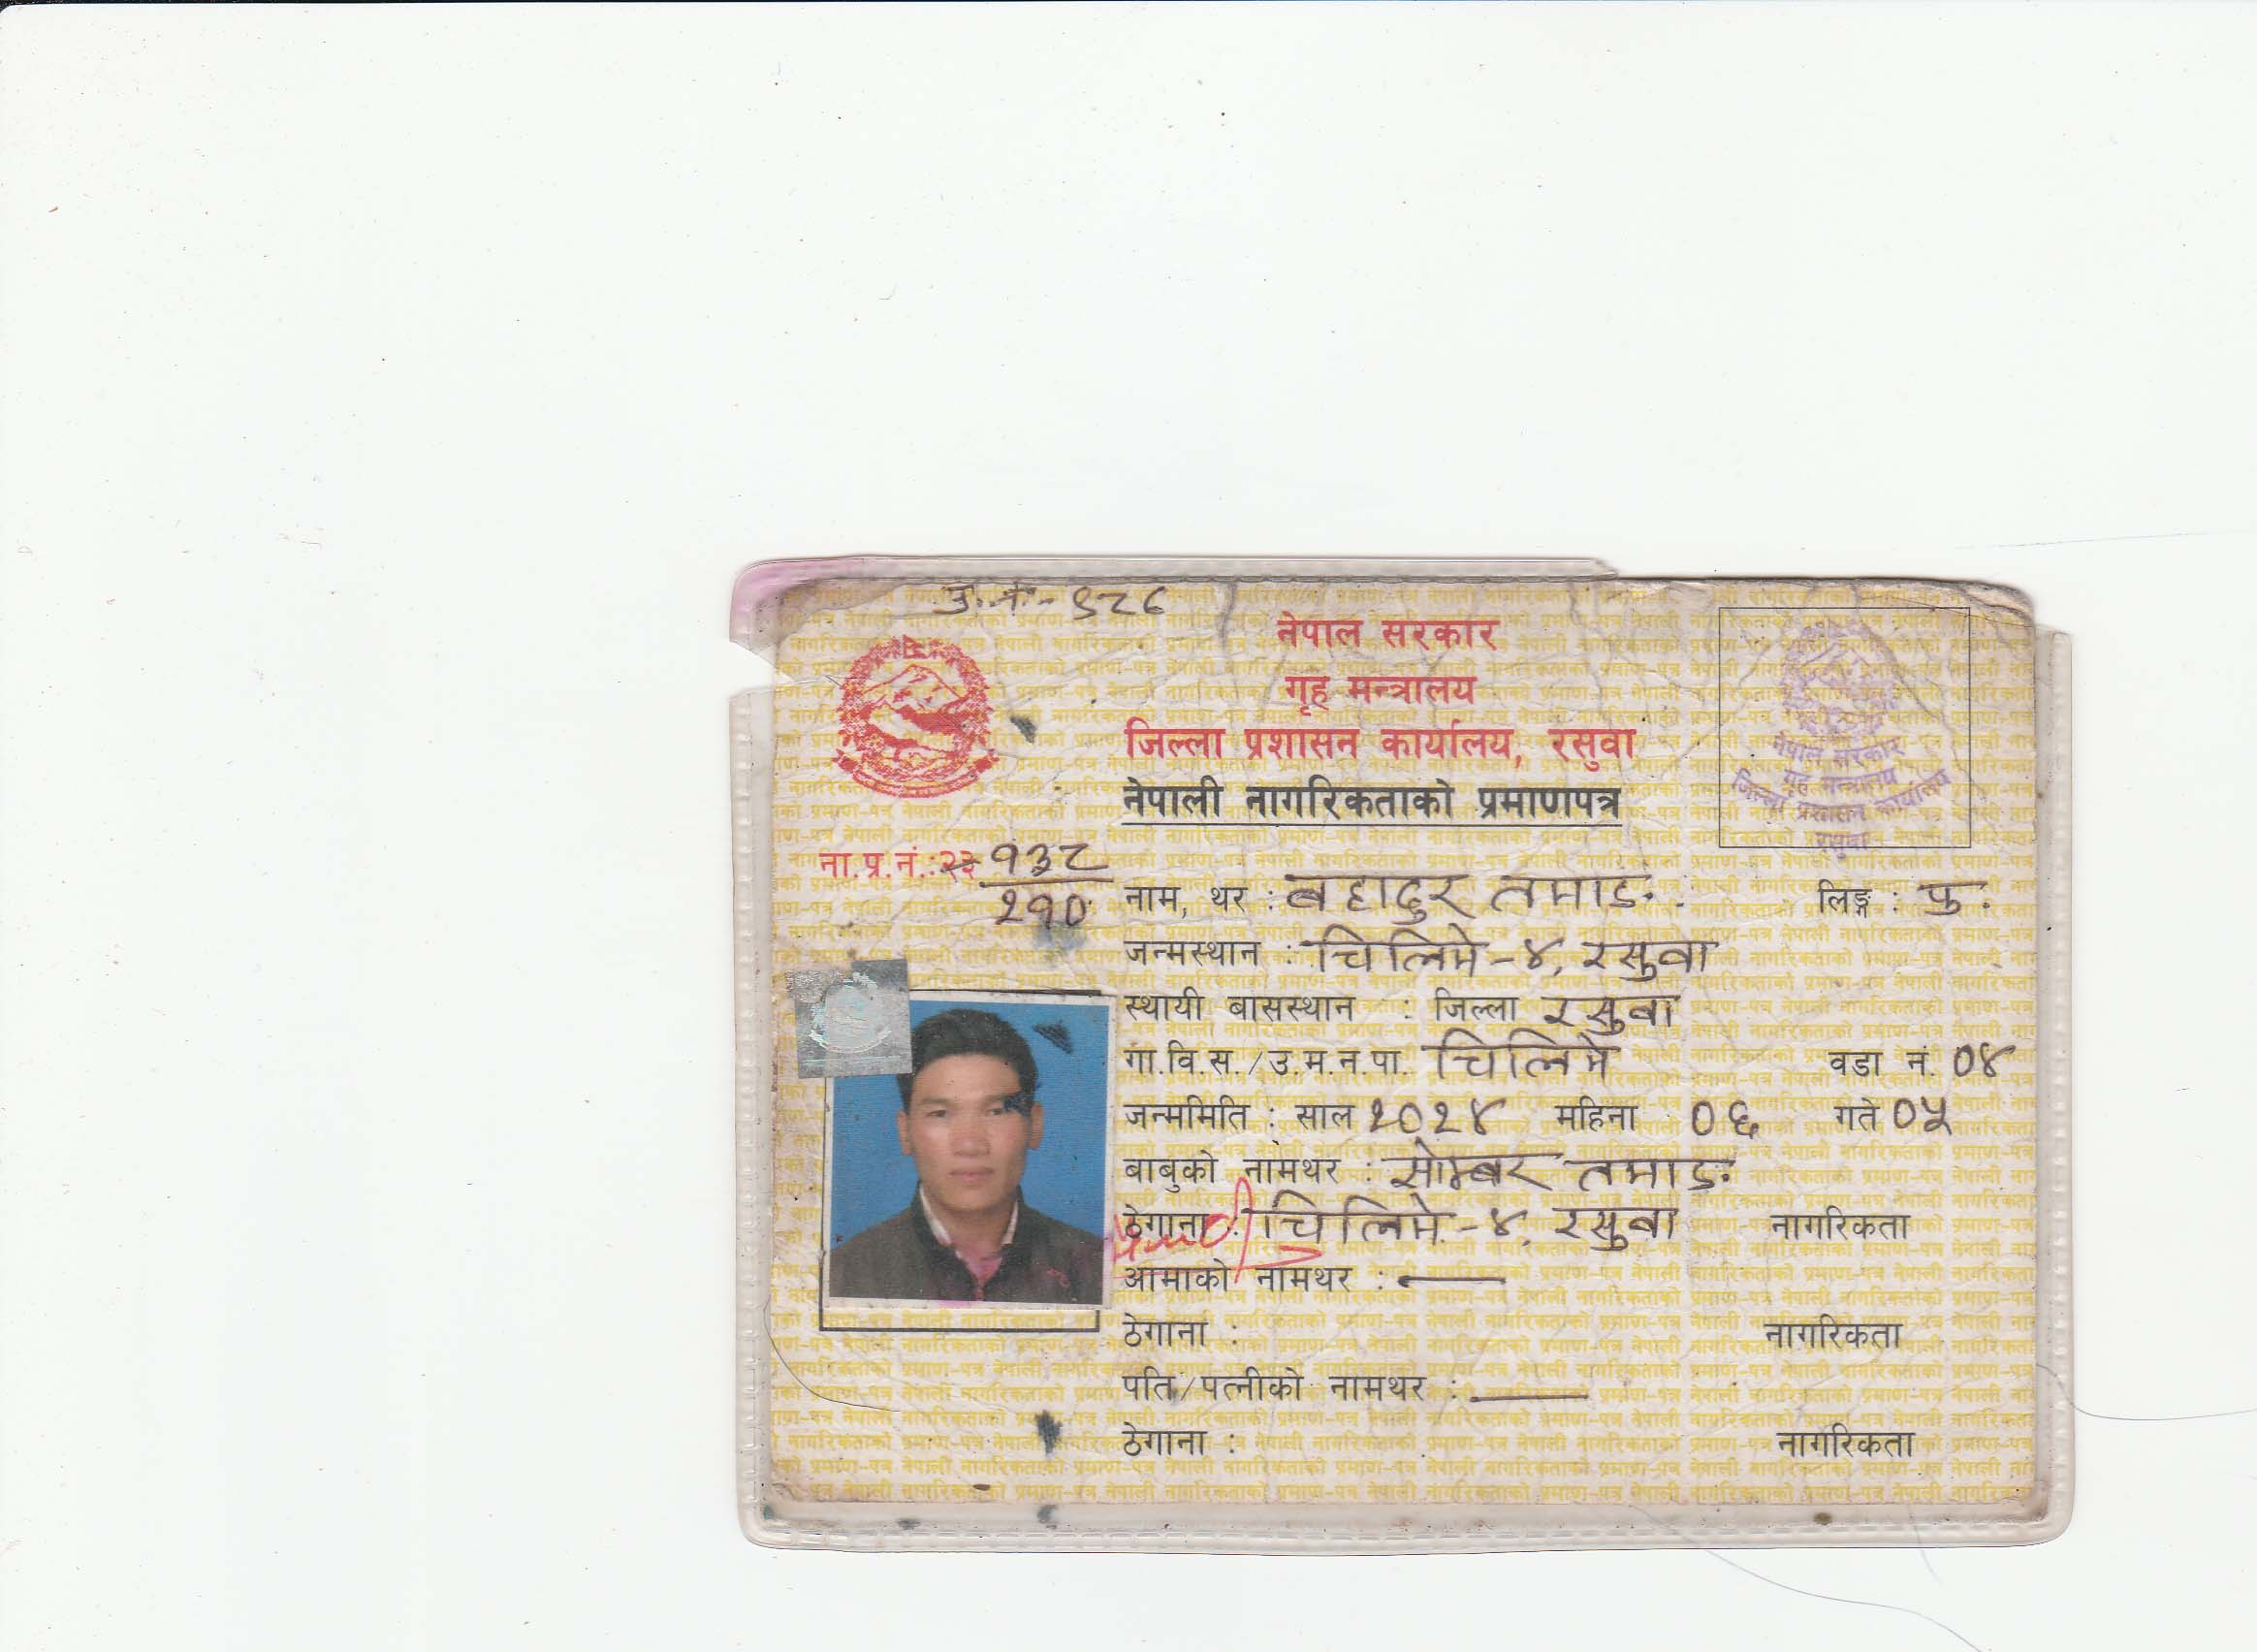 नेपाल सरकार
गृह मन्त्रालय
जिल्ला प्रशासन कार्यालय, रसुवा
नेपाली नागरिकताको प्रमाणपत्र
नेपाल सरकार
गृह मन्त्रालय
जिल्ला प्रशासन कार्यालय
रसुवा
ना.प्र.नं.: २३- १३८/२१०
नाम, थर : बहादुर तमाङ लिङ्ग : पु.
जन्मस्थान : चिलिमे-४, रसुवा
स्थायी बासस्थान : जिल्ला रसुवा
गा.वि.स./उ.म.न.पा. चिलिमे वडा नं. ०४
जन्ममिति : साल २०२४ महिना ०६ गते ०५
बाबुको नामथर : सोम्बर तमाङ
ठेगाना : चिलिमे-४, रसुवा नागरिकता
आमाको नामथर : —
ठेगाना : नागरिकता
पति/पत्नीको नामथर : —
ठेगाना : नागरिकता